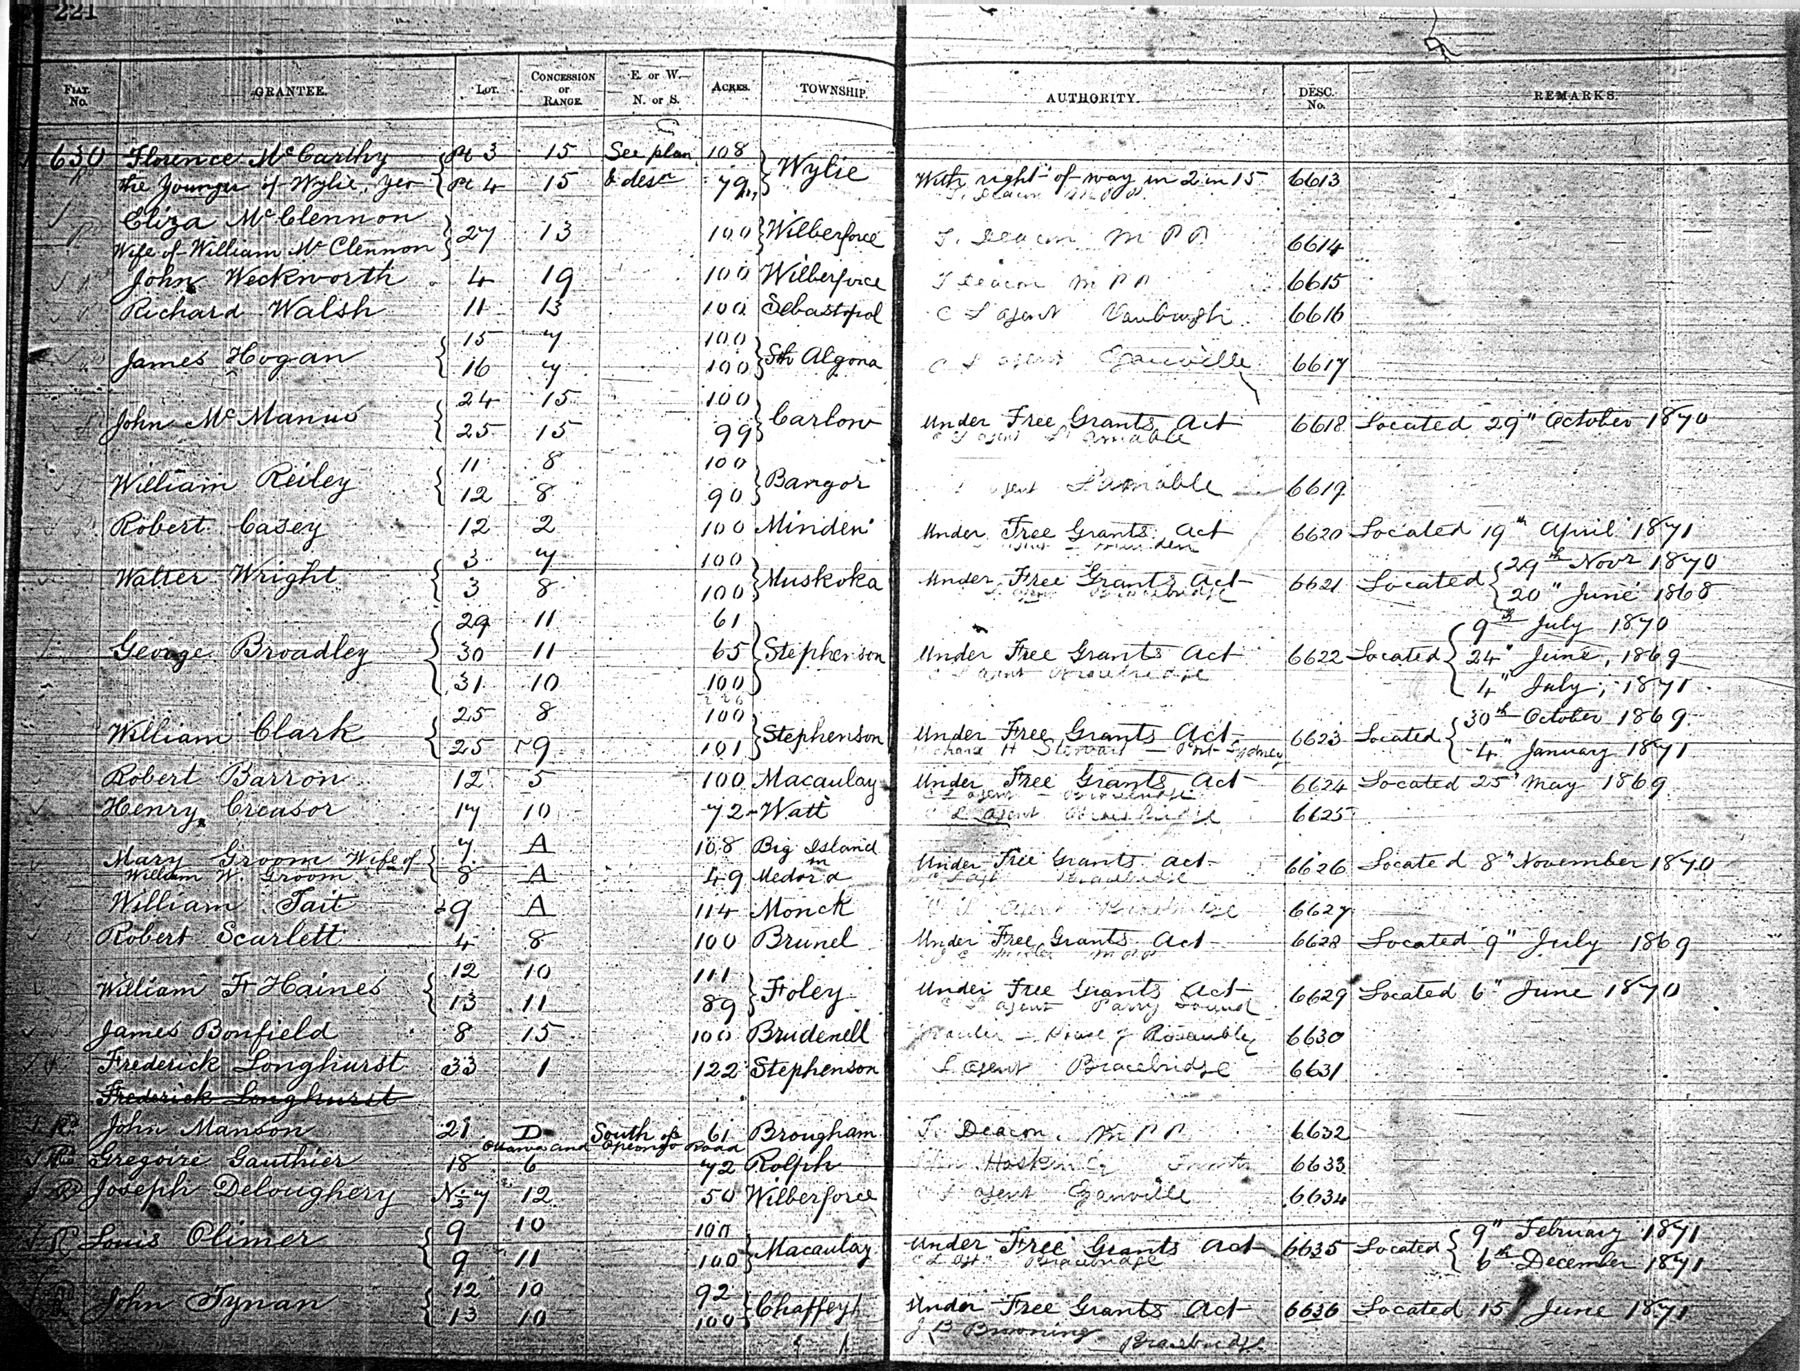 221
FIAT. No. GRANTEE. LOT. CONCESSION or RANGE. E. or W. N. or S. ACRES. TOWNSHIP. AUTHORITY. DESC. No. REMARKS.
630 Florence McCarthy { Pt 3 15 See plan 108 } Wylie
the Younger of Wylie, Yeo { Pt 4 15 & desn 79 With right of way in 2 in 15 6613
T. Deacon M P P
Eliza McClennon } 27 13 100 } Wilberforce T. Deacon M P P 6614
Wife of William McClennon
John Weckworth 4 19 100 Wilberforce T Deacon M P P 6615
Richard Walsh 11 13 100 Sebastopol C L agent Vanbrugh 6616
James Hogan { 15 7 100 } Sth Algona C L agent Eganville 6617
16 7 100
John McManus { 24 15 100 } Carlow Under Free Grants Act 6618 Located 29" October 1870
25 15 99 C L agent L'Amable
William Reiley { 11 8 100 } Bangor L agent L'Amable 6619
12 8 90
Robert Casey 12 2 100 Minden Under Free Grants Act 6620 Located 19th April 1871
agent Minden
Walter Wright { 3 7 100 } Muskoka Under Free Grants Act 6621 Located { 29th Novr 1870
3 8 100 L agent Bracebridge 20" June 1868
George Broadley { 29 11 61 } Stephenson 9th July 1870
30 11 65 Under Free Grants Act 6622 Located { 24" June, 1869
31 10 100 C L agent Bracebridge 4" July, 1871
226
William Clark { 25 8 100 } Stephenson Under Free Grants Act 6623 Located { 30th October 1869
25 9 101 Richard H Stewart – Port Sydney 4" January 1871
Robert Barron 12 5 100 Macaulay Under Free Grants Act 6624 Located 25" May 1869
C L agent – Bracebridge
Henry Creasor 17 10 72 Watt C L agent Bracebridge 6625
Mary Groom Wife of { 7 A 108 Big Island Under Free Grants Act 6626 Located 8" November 1870
William W. Groom 8 A 49 in Medora C L agt Bracebridge
William Tait 9 A 114 Monck C L agent Bracebridge 6627
Robert Scarlett 4 8 100 Brunel Under Free Grants Act 6628 Located 9" July 1869
J C Miller M P P
William F Haines { 12 10 111 } Foley Under Free Grants Act 6629 Located 6" June 1870
13 11 89 C L agent Parry Sound
James Bonfield 8 15 100 Brudenell Grantee – House of Assembly 6630
Frederick Longhurst 33 1 122 Stephenson L agent Bracebridge 6631
Frederick Longhurst
John Manson 21 D South of 61 Brougham T. Deacon M P P 6632
Ottawa and Opeongo Road
Gregoire Gauthier 18 6 72 Rolph John Hoskin 6633
Joseph Deloughery N½ 7 12 50 Wilberforce C L agent Eganville 6634
Louis Climer { 9 10 100 } Macaulay Under Free Grants Act 6635 Located { 9" February 1871
9 11 100 C L agt Bracebridge 6th December 1871
John Tynan { 12 10 92 } Chaffey Under Free Grants Act 6636 Located 15 June 1871
13 10 100 J B Browning Bracebridge